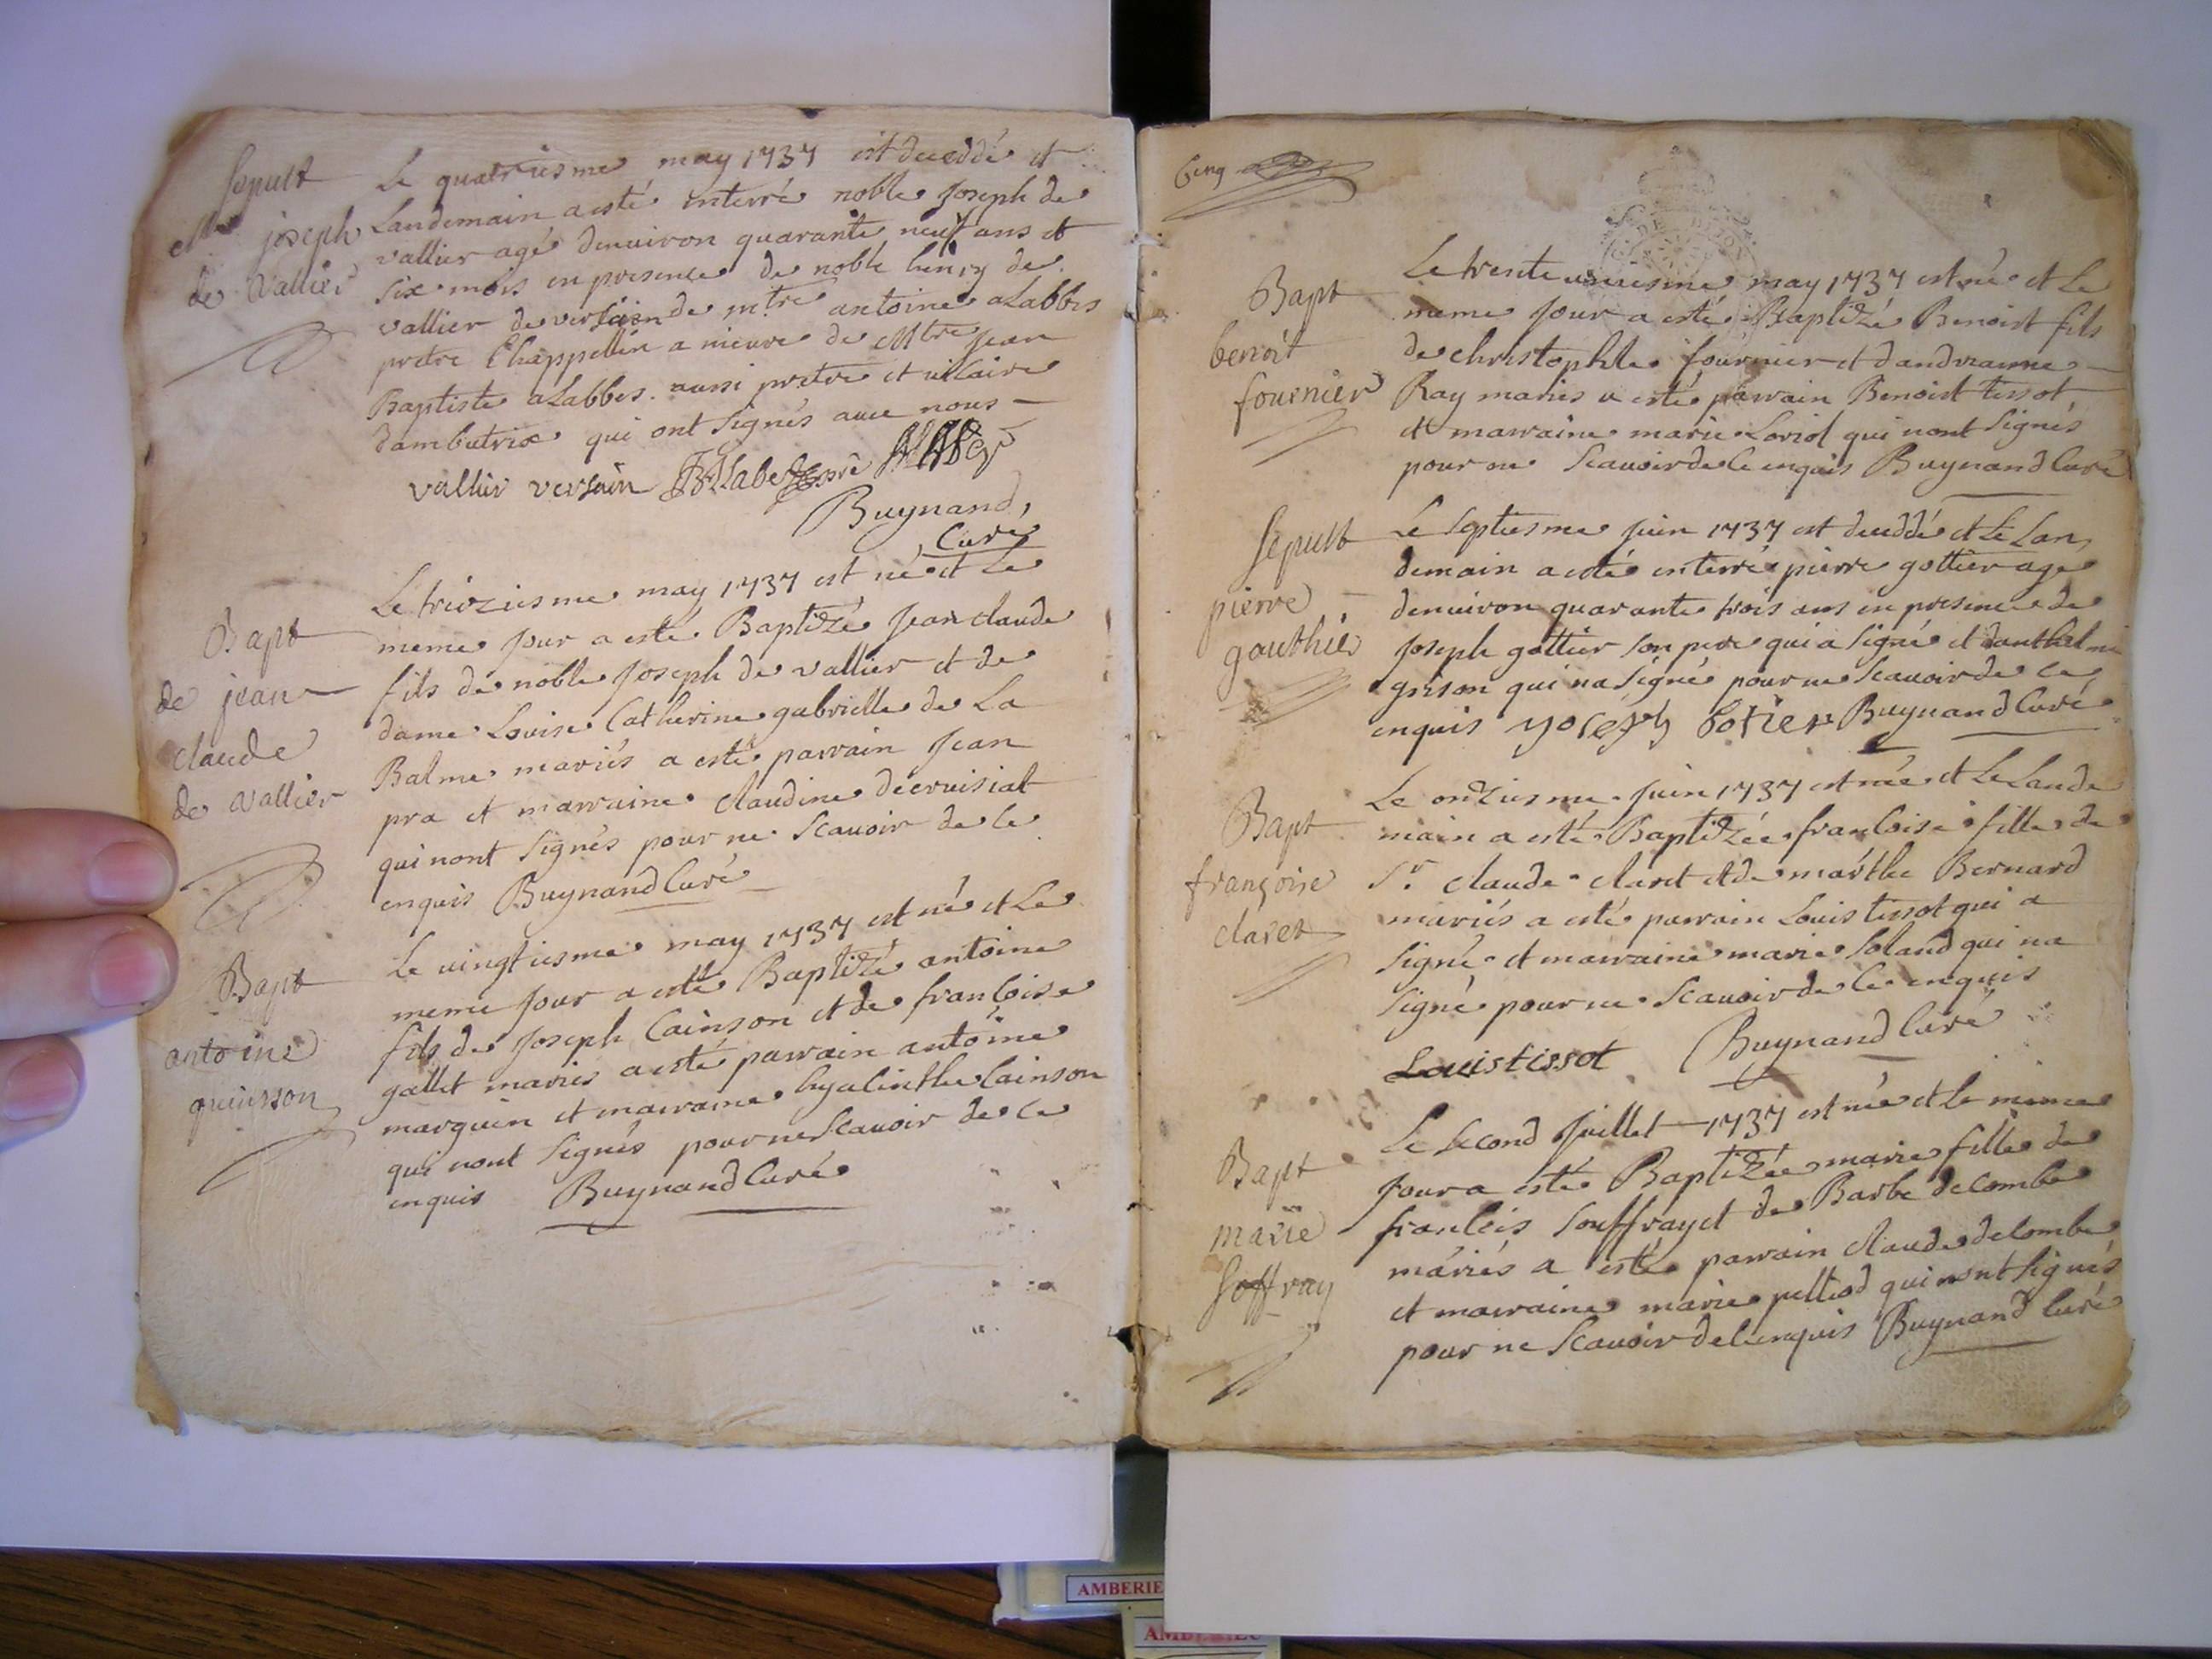 Sepult
Mre joseph
de vallier
Le quatriesme may 1737 est decedé et
Landemain a esté enterré noble Joseph de
vallier agé denuiron quarante neuf ans et
six mois en presence de noble henry de
vallier de versain de mtre antoine aLabbes
pretre Chappellin a de Mtre Jean
Baptiste aLabbes aussi pretre et vicaire
dambutrix qui ont signés auec nous
vallier versain
Buynand,
Curé
Bapt
de jean
claude
de vallier
Le treiziesme may 1737 est né et Le
meme Jour a esté Baptizé Jean claude
fils de noble Joseph de vallier et de
dame Louise Catherine gabrielle de La
Balme mariés a esté parrain Jean
pra et marraine claudine decruisiat
qui nont signés pour ne scauoir de ce
enquis Buynand Curé
Bapt
antoine
queinson
Le vingtiesme may 1737 est né et Le
meme Jour a esté Baptizé antoine
fils de Joseph Cainson et de francoise
gallet mariés a esté parrain antoine
marguin et marraine hyacinthe Cainson
qui nont signés pour ne scauoir de ce
enquis Buynand Curé
Cinq
Bapt
benoit
fournier
Le trente uniesme may 1737 est né et Le
meme Jour a esté Baptizé Benoist fils
de christophle fournier et dandreanne
Ray mariés a esté parrain Benoist tissot
et marraine marie Loriol qui nont signés
pour ne scauoir de ce enquis Buynand Curé
Sepult
pierre
gouthier
Le septiesme Juin 1737 est decedé et Le Lan
demain a esté enterré pierre gottier agé
denuiron quarante trois ans en presence de
Joseph gottier son pere qui a signé et danthelme
grison qui na signé pour ne scauoir de ce
enquis yoseph gotier Buynand Curé
Bapt
françoise
claret
Le onziesme Juin 1737 est née et Le Lande
main a esté Baptizée francoise fille de
Sr. claude claret et de marthe Bernard
mariés a esté parrain Louis tissot qui a
signé et marraine marie Soland qui na
signé pour ne scauoir de ce enquis
Louis tissot Buynand Curé
Bapt
marie
soffray
Le second Juillet 1737 est née et le meme
Jour a esté Baptizée marie fille de
francois souffray et de Barbe decombe
mariés a esté parrain claude decombe
et marraine marie pelliod qui nont signés
pour ne scauoir de ce enquis Buynand Curé
AMBERIE